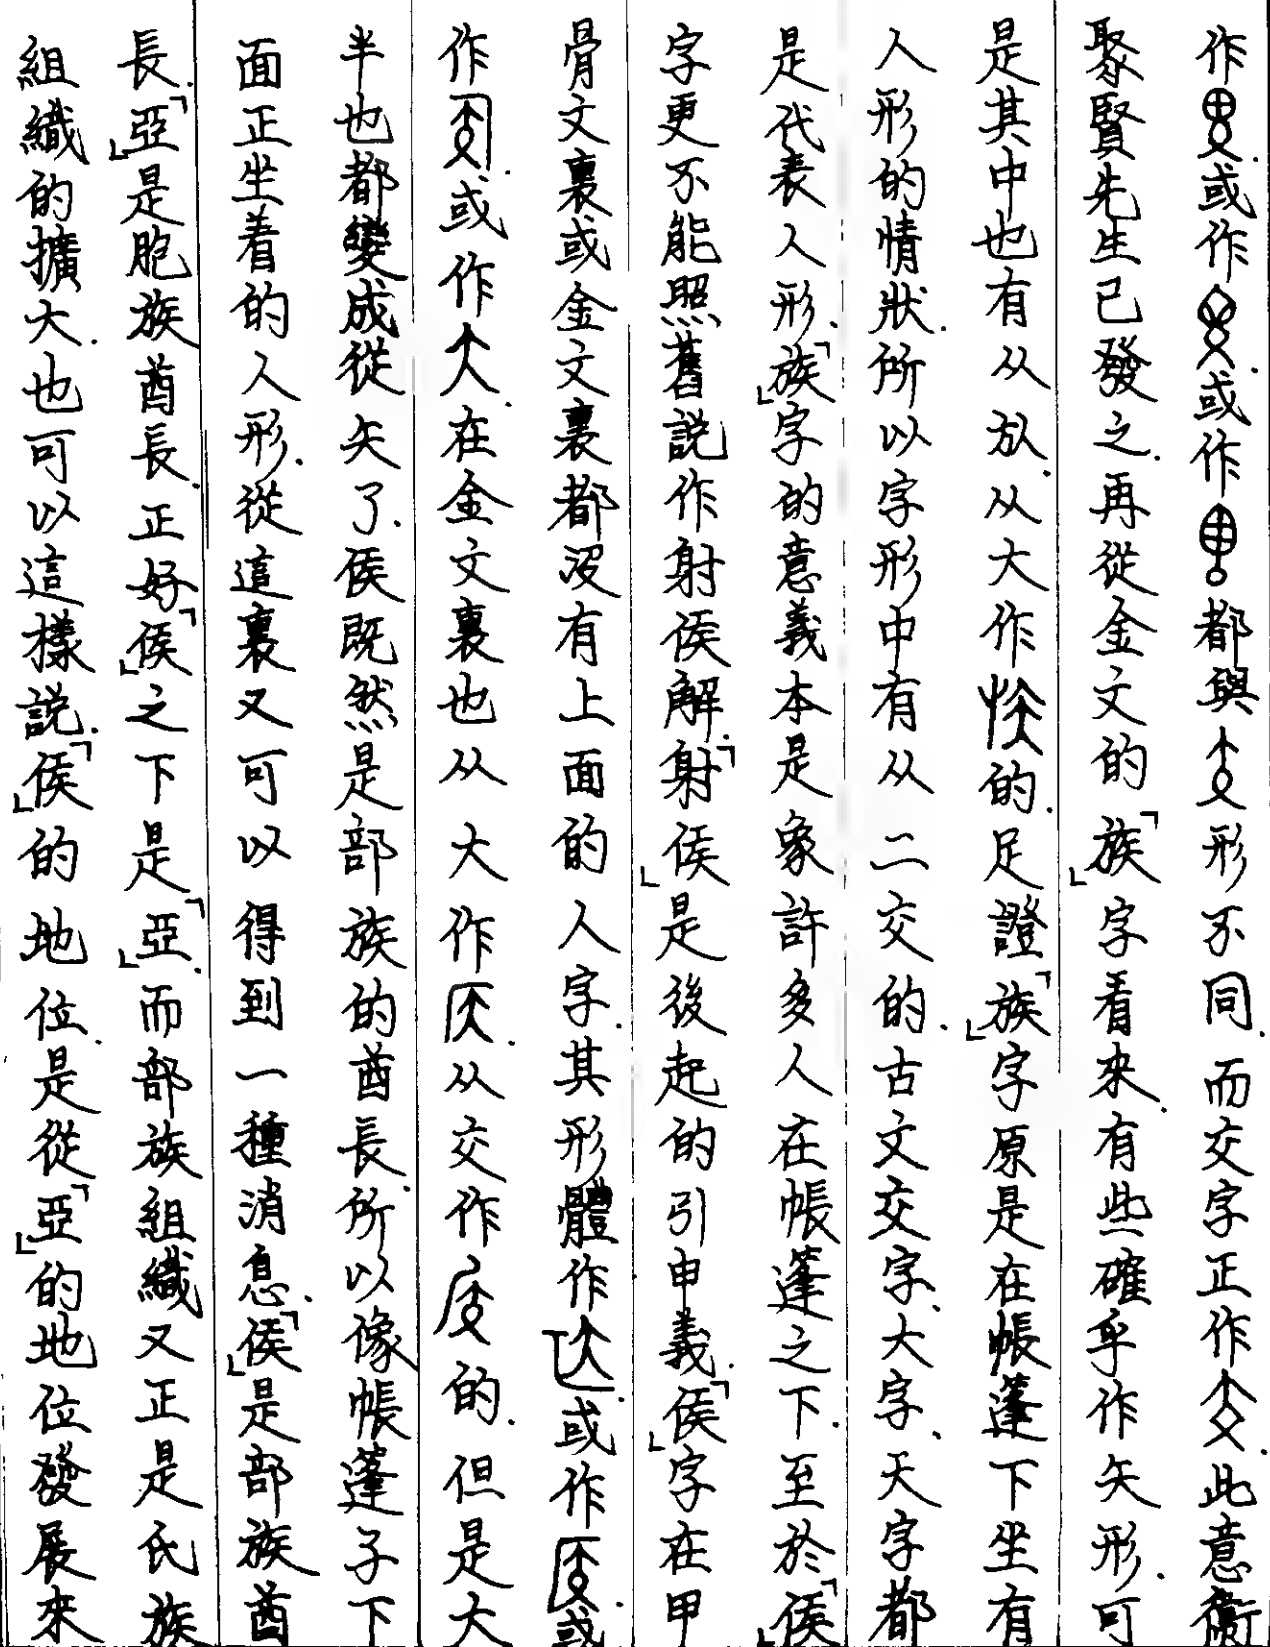 作或作或作都與形不同.而交字正作.此意衞
聚賢先生已發之.再從金文的「族」字看來.有些確乎作矢形.可
是其中也有从㫃.从大作的.足證「族」字原是在帳篷下坐有
人形的情狀.所以字形中有从二交的.古文交字、大字、天字都
是代表人形.「族」字的意義本是象許多人在帳篷之下.至於「侯」
字更不能照舊説作射侯解.「射侯」是後起的引申義.「侯」字在甲
骨文裏或金文裏都沒有上面的人字.其形體作.或作.或
作.或作.在金文裏也从大作.从交作的.但是大
半也都變成從矢了.侯既然是部族的酋長.所以像帳篷子下
面正坐着的人形.從這裏又可以得到一種消息.「侯」是部族酋
長.「亞」是胞族酋長.正好「侯」之下是「亞」.而部族組織又正是氏族
組織的擴大.也可以這樣説.「侯」的地位.是從「亞」的地位發展來